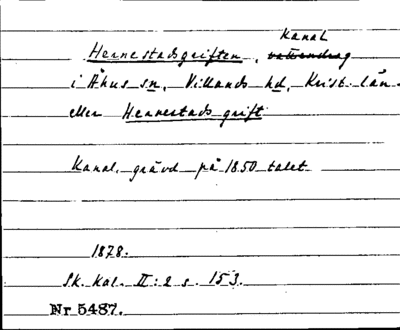 Hernestadsgriften, kanal vattendrag
i Åhus sn, Villands hd, Krist. län.
eller Hernestads grift
Kanal, grävd på 1850 talet
1878.
Sk. Kal. II: 2 s. 153.
Nr 5487.